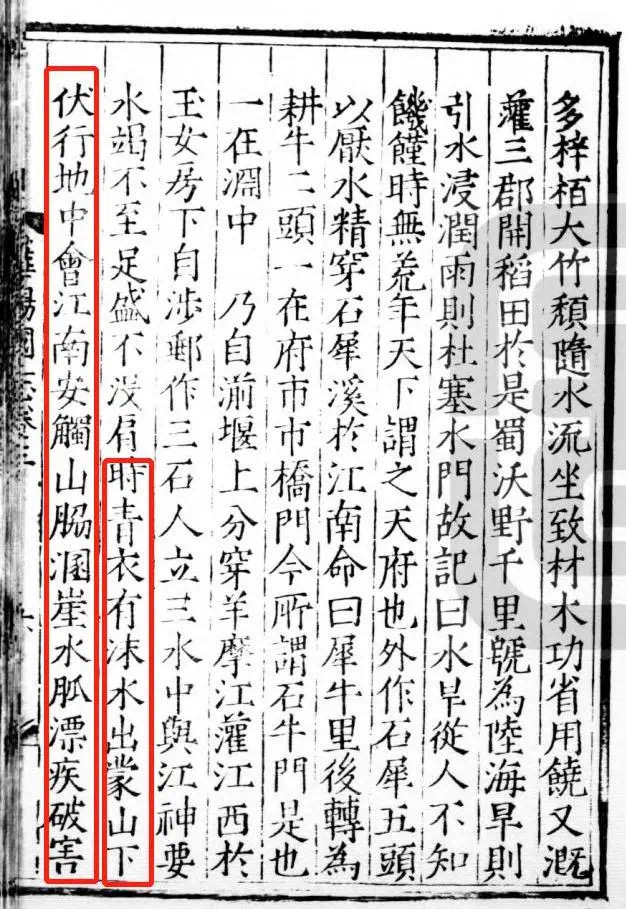 多梓栢大竹頹隨水流坐致材木功省用饒又溉
灌三郡開稻田於是蜀沃野千里號為陸海旱則
引水浸潤雨則杜塞水門故記曰水旱從人不知
饑饉時無荒年天下謂之天府也外作石犀五頭
以厭水精穿石犀溪於江南命曰犀牛里後轉為
耕牛二頭一在府市市橋門今所謂石牛門是也
一在淵中 乃自湔堰上分穿羊摩江灌江西於
玉女房下自涉郵作三石人立三水中與江神要
水竭不至足盛不没肩時青衣有沫水出蒙山下
伏行地中會江南安觸山脇溷崖水脈漂疾破害
華陽國志卷三